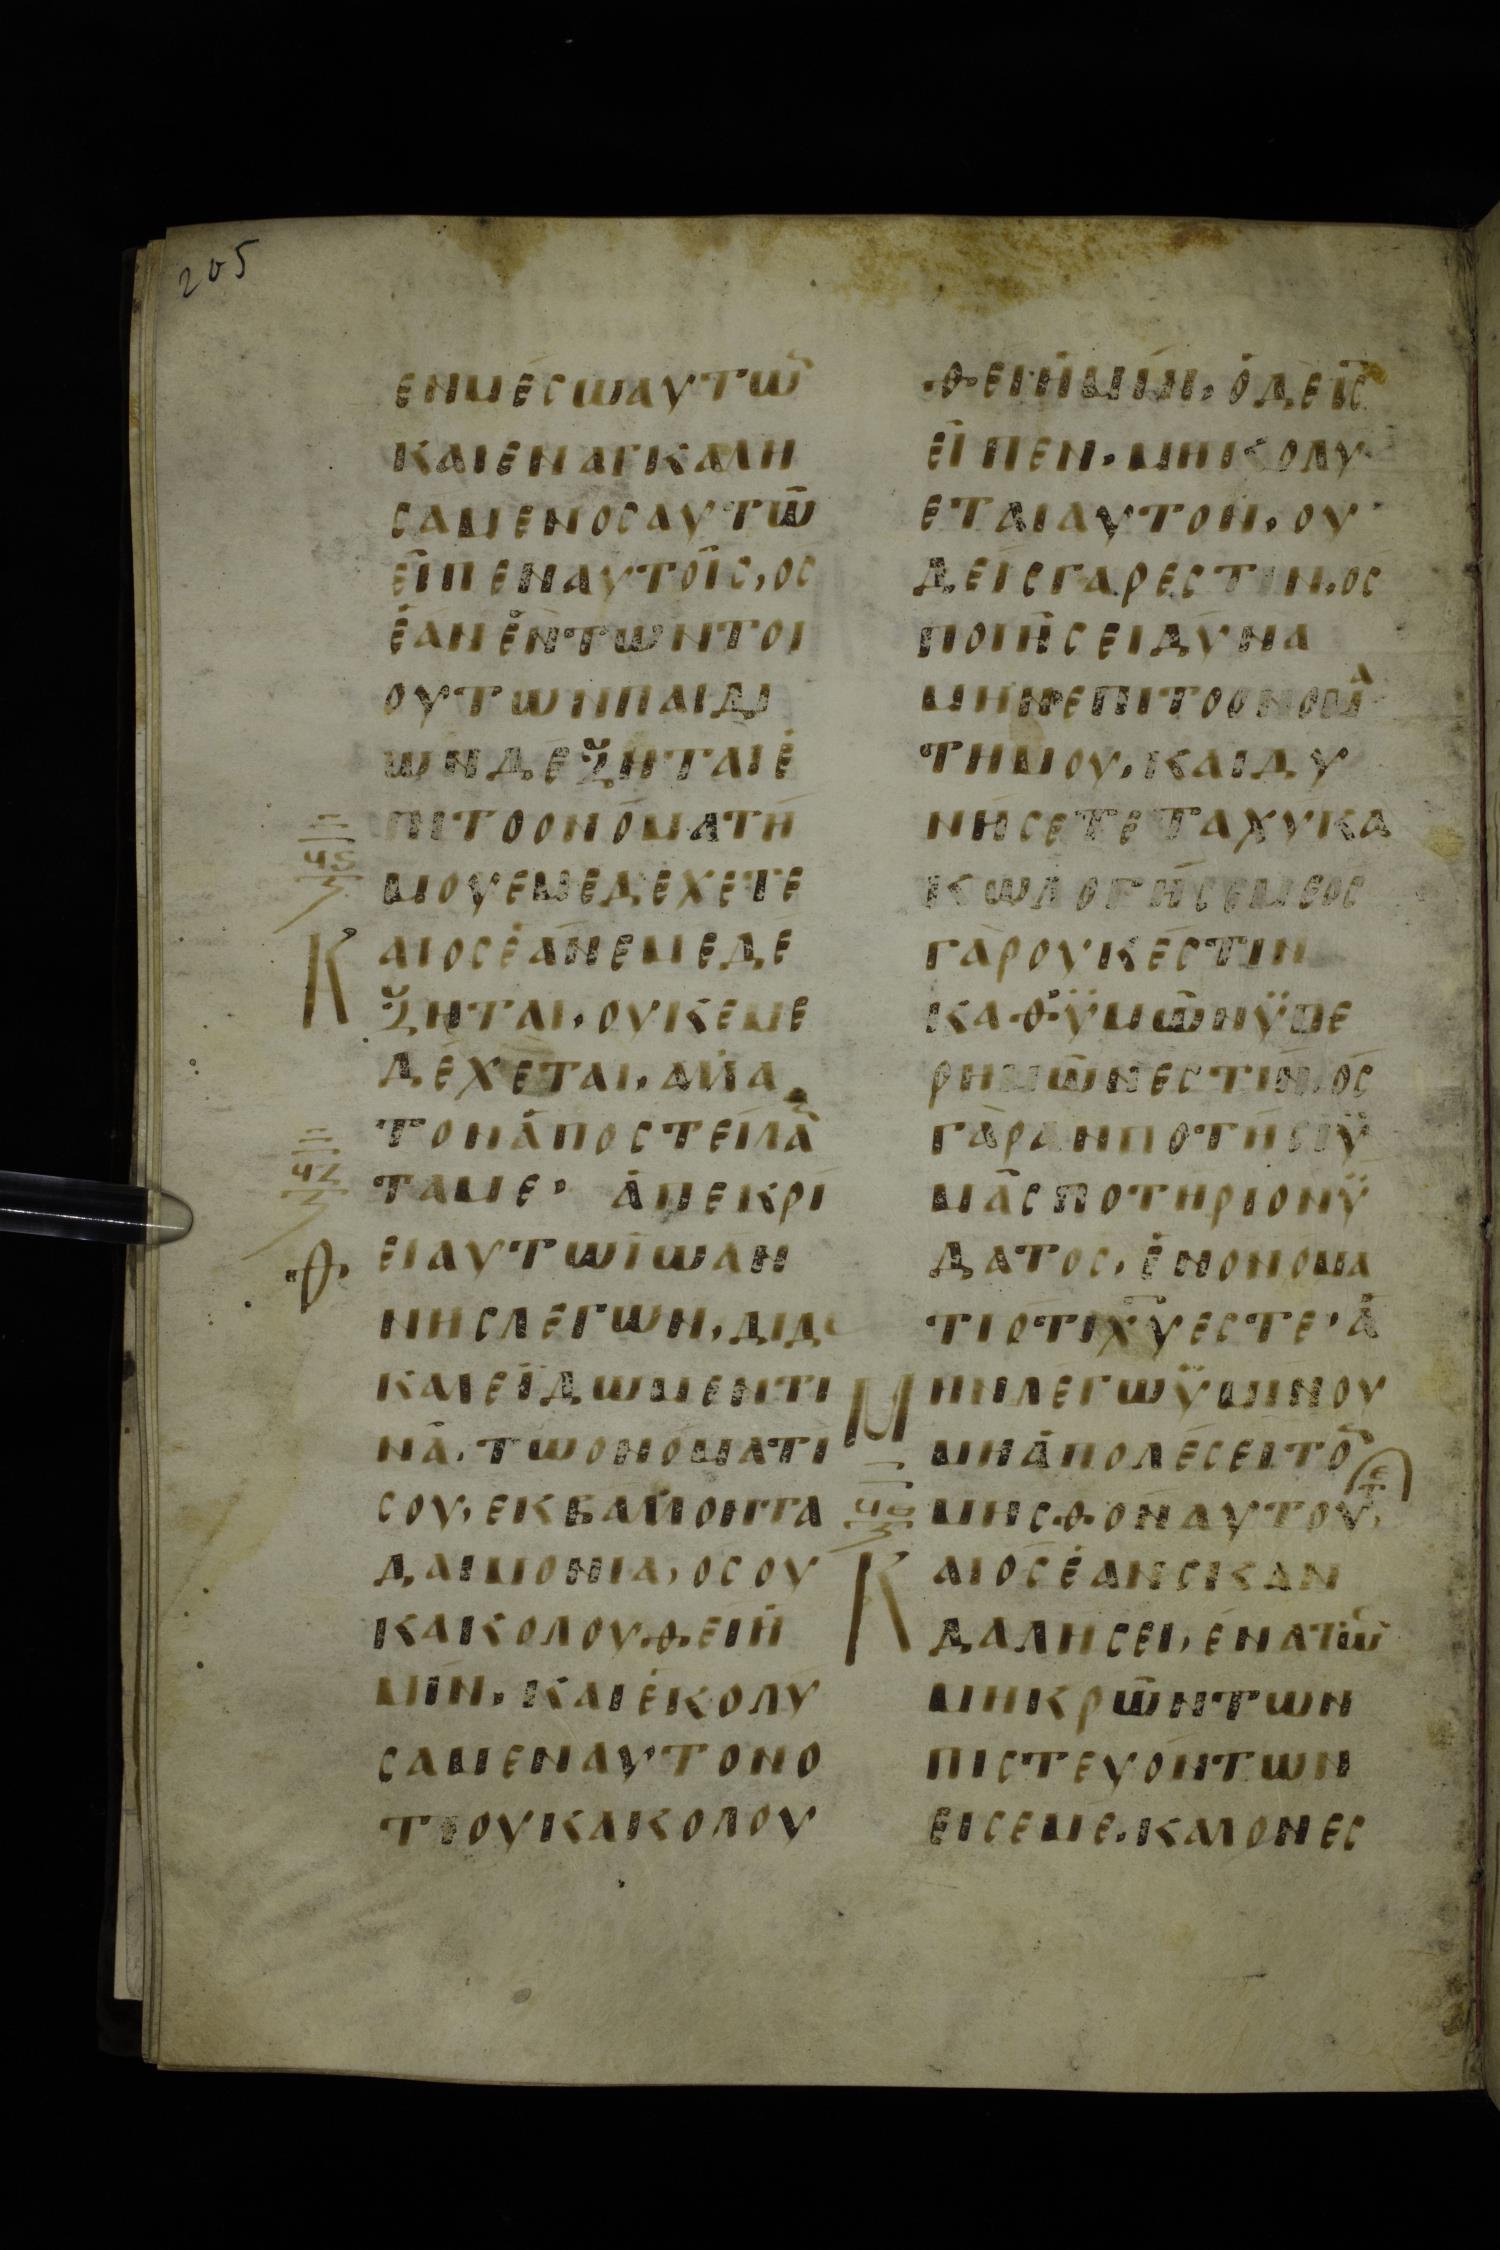 205
ΕΝΜΕΣΩΑΥΤΩ͂
ΚΑΙΕΝΑΓΚΑΛΗ
ΣΑΜΕΝΟΣΑΥΤΩ͂
ΕΙΠΕΝΑΥΤΟΙΣ, ΟΣ
ΕΑΝΕΝΤΩΝΤΟΙ
ΟΥΤΩΝΠΑΙΔΙ
ΩΝΔΕΞΗΤΑΙΕ
ΠΙΤΟΟΝΟΜΑΤΗ
ΜΟΥΕΜΕΔΕΧΕΤΕ
ΚΑΙΟΣΕΑΝΕΜΕΔΕ
ΞΗΤΑΙ, ΟΥΚΕΜΕ
ΔΕΧΕΤΑΙ, ΑΛΛΑ
ΤΟΝΑΠΟΣΤΕΙΛΑ
ΤΑΜΕ· ΑΠΕΚΡΙ
ΘΕΙΑΥΤΩΙΩΑΝ
ΝΗΣΛΕΓΩΝ, ΔΙΔΣ
ΚΑΛΕΪΔΩΜΕΝΤΙ
ΝΑ, ΤΩΟΝΟΜΑΤΙ
ΣΟΥ, ΕΚΒΑΛΛΟΝΤΑ
ΔΑΙΜΟΝΙΑ, ΟΣΟΥ
ΚΑΚΟΛΟΥΘΕΙΗ
ΜΙΝ, ΚΑΙΕΚΟΛΥ
ΣΑΜΕΝΑΥΤΟΝΟ
ΤΙΟΥΚΑΚΟΛΟΥ
ΘΕΙΗΜΙΝ, ΟΔΕΙ͞Σ
ΕΙΠΕΝ, ΜΗΚΟΛΥ
ΕΤΑΙΑΥΤΟΝ, ΟΥ
ΔΕΙΣΓΑΡΕΣΤΙΝ, ΟΣ
ΠΟΙΗΣΕΙΔΥΝΑ
ΜΗΝΕΠΙΤΟΟΝΟΜΑ
ΤΗΜΟΥ, ΚΑΙΔΥ
ΝΗΣΕΤΕΤΑΧΥΚΑ
ΚΩΛΟΓΗΣΕΜΕΟΣ
ΓΑΡΟΥΚΕΣΤΙΝ
ΚΑΘΫΜΩΝΫΠΕ
ΡΗΜΩΝΕΣΤΙΝ, ΟΣ
ΓΑΡΑΝΠΟΤΗΣΙΫ
ΜΑΣΠΟΤΗΡΙΟΝΫ
ΔΑΤΟΣ, ΕΝΟΝΟΜΑ
ΤΙΟΤΙΧ͞ΥΕΣΤΕ, Α
ΜΗΝΛΕΓΩΫΜΙΝΟΥ
ΜΗΑΠΟΛΕΣΕΙΤΟ
ΜΗΣΘΟΝΑΥΤΟΥ,
ΚΑΙΟΣΕΑΝΣΚΑΝ
ΔΑΛΗΣΕΙ, ΕΝΑΤΩ͂
ΜΗΚΡΩΝΤΩΝ
ΠΙΣΤΕΥΟΝΤΩΝ
ΕΙΣΕΜΕ, ΚΑΛΟΝΕΣ